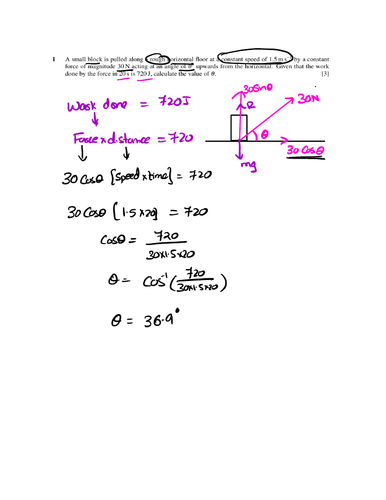 1 A small block is pulled along a rough horizontal floor at a constant speed of 1.5 m s⁻¹ by a constant
force of magnitude 30 N acting at an angle of θ° upwards from the horizontal. Given that the work
done by the force in 20 s is 720 J, calculate the value of θ. [3]
Work done = 720J
Force x distance = 720
30 Cosθ [speed x time] = 720
30 Cosθ [1.5 x 20] = 720
Cosθ = 720
30x1.5x20
θ = Cos⁻¹ (720
30x1.5x20)
θ = 36.9°
30sinθ
R
30N
θ
30 Cosθ
mg